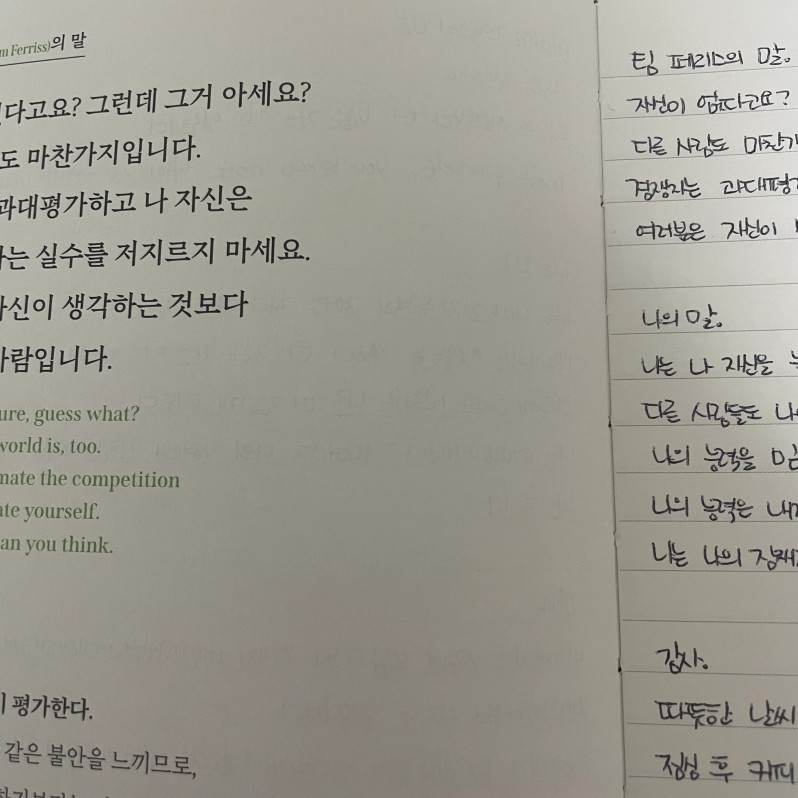 m Ferriss)의 말
다고요? 그런데 그거 아세요?
도 마찬가지입니다.
과대평가하고 나 자신은
는 실수를 저지르지 마세요.
자신이 생각하는 것보다
사람입니다.
ure, guess what?
world is, too.
mate the competition
ate yourself.
an you think.
평가한다.
같은 불안을 느끼므로,
팀 페리스의 말.
자신이 없다고요?
다른 사람도 마찬가
경쟁자는 과대평가
여러분은 자신이
나의 말.
나는 나 자신을
다른 사람들도 나
나의 능력을 믿
나의 능력은 내가
나는 나의 잠재
감사.
따뜻한 날씨
점심 후 커피